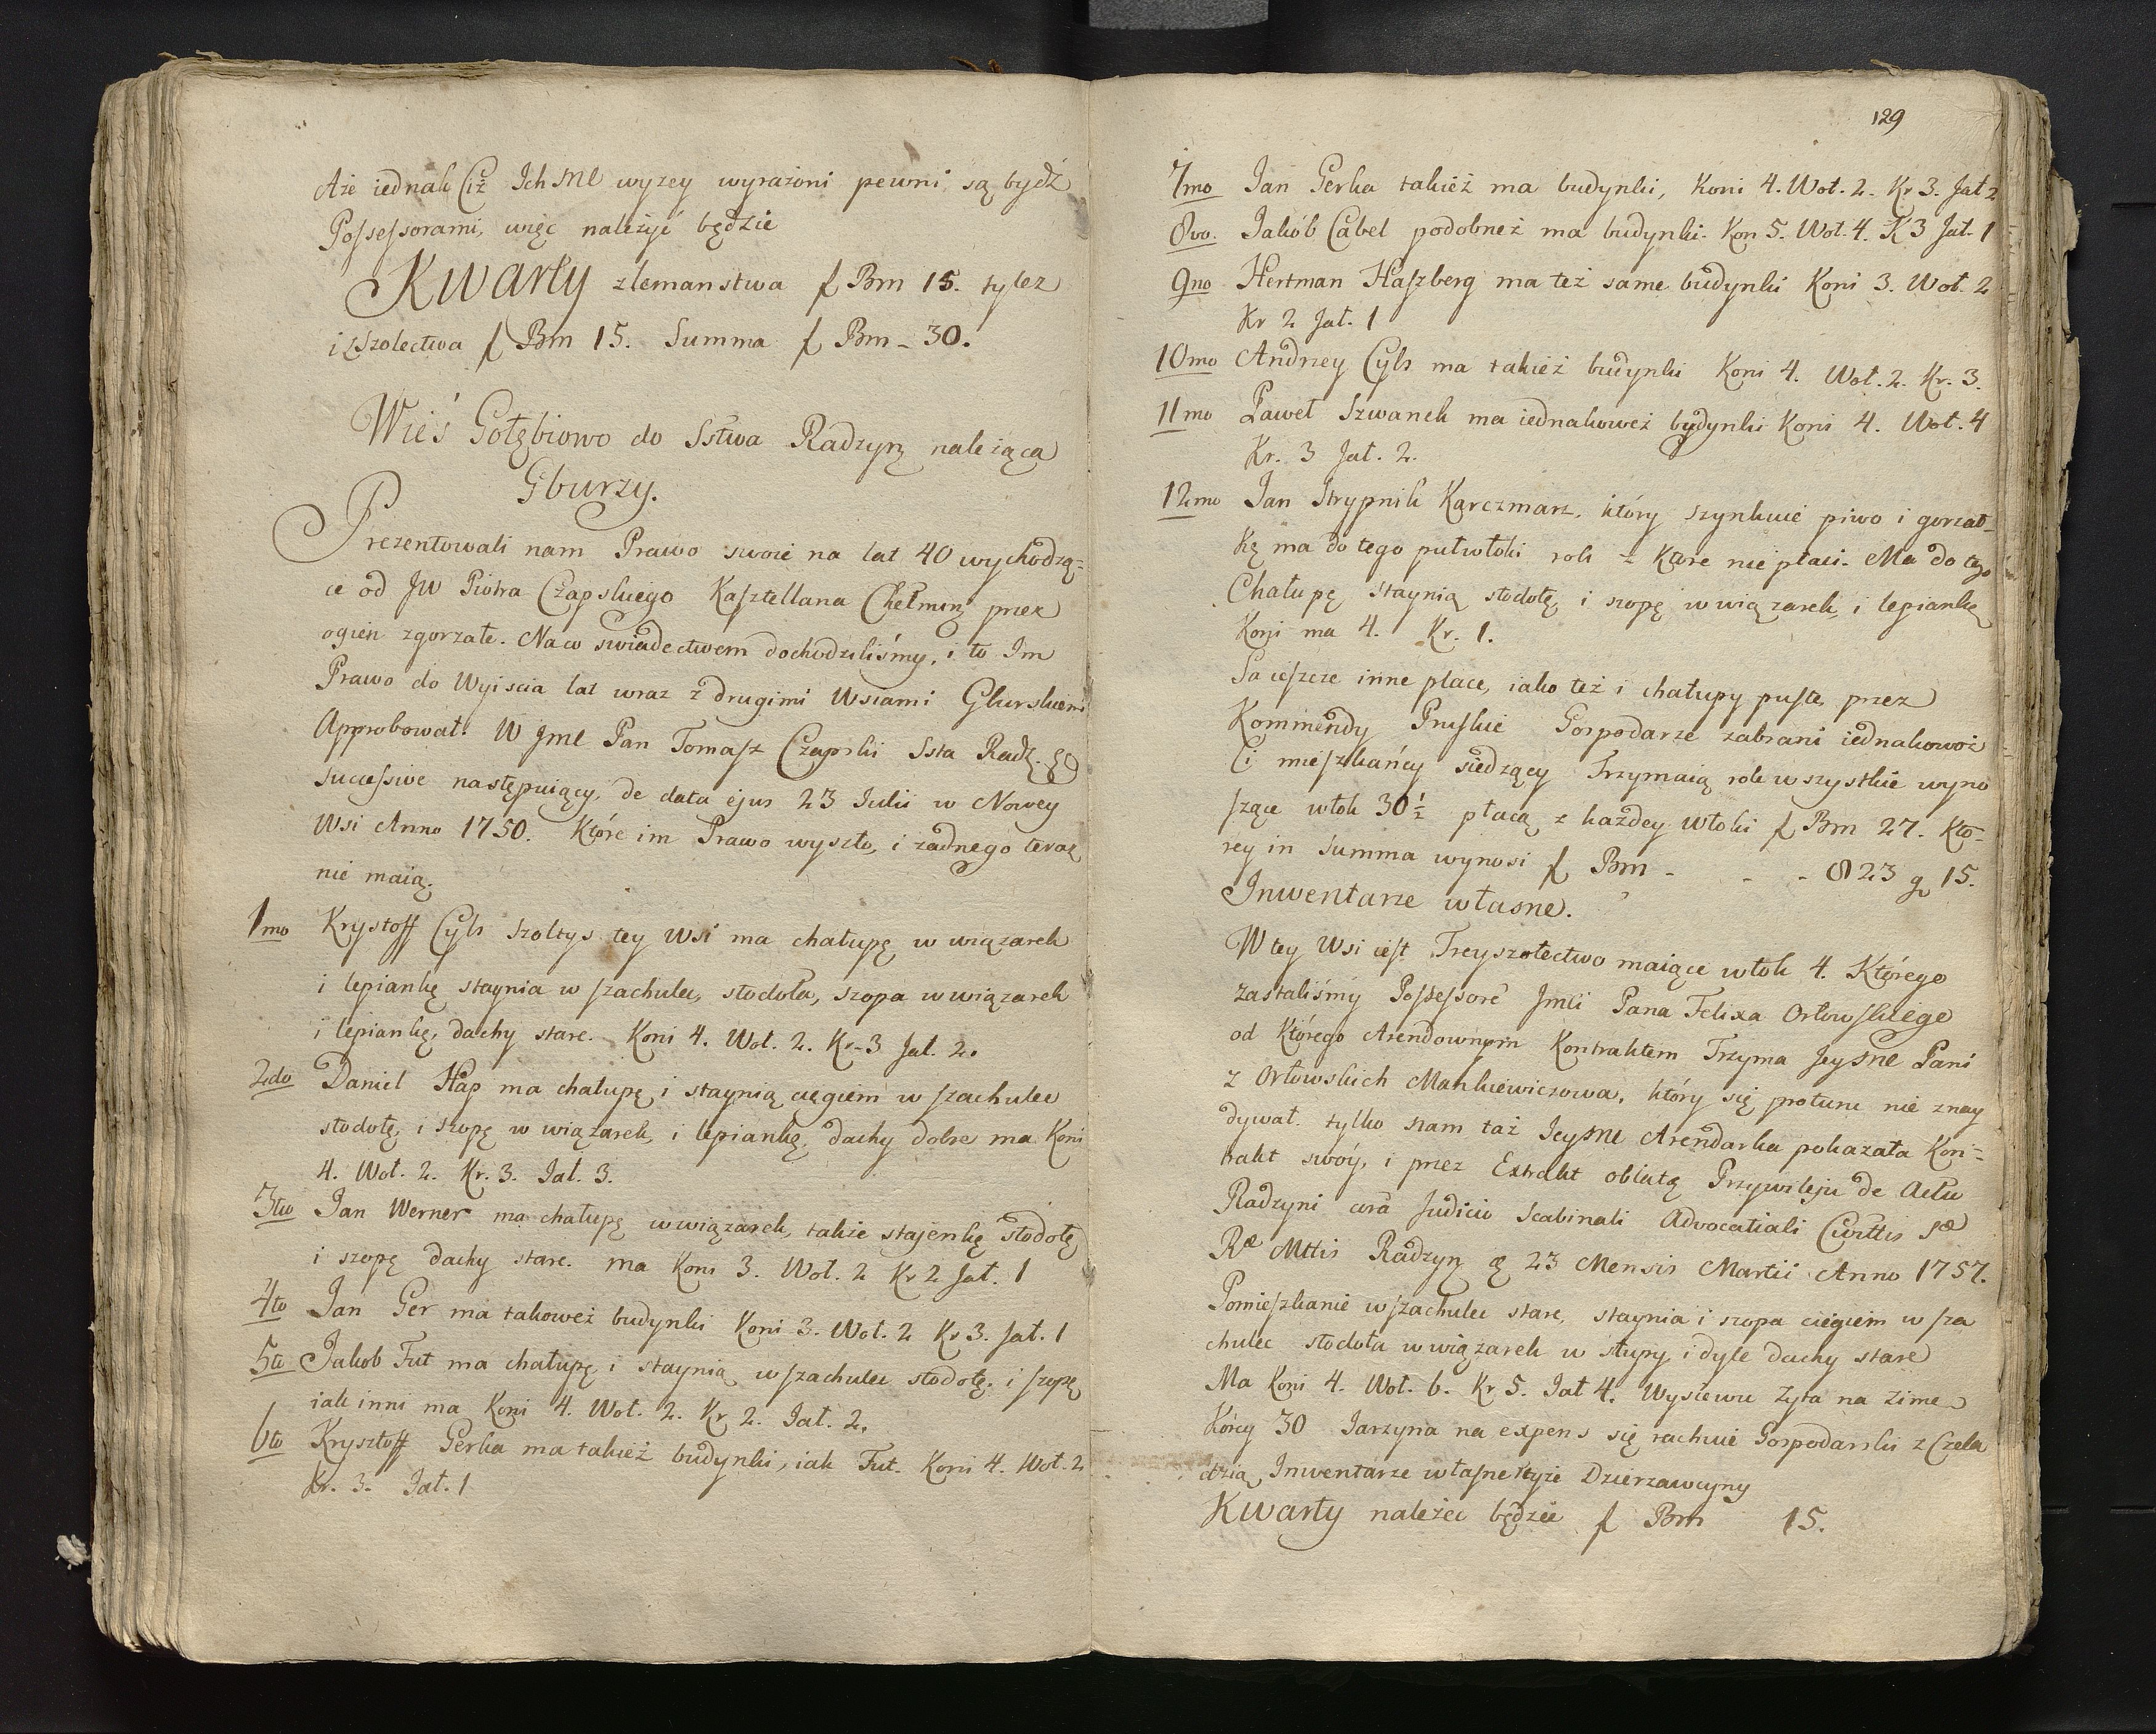 Aże iednak Ciż Ich Mć wyzey wyrażoni pewni są bydź
Possessorami, więc należyć będzie
Kwarty z lemanstwa f Bm 15. tylez
i z Szolectwa f Bm 15. Summa f Bm - 30.
Wieś Gołębiowo do Sstwa Radzyn należąca
Gburzy.
Prezentowali nam Prawo swoie na lat 40 wychodzą=
ce od JW Piotra Czapskiego Kasztellana Chełmin przez
ogien zgorzałe. Na co swiadectwem dochodziliśmy, i to Im
Prawo do Wyiscia lat wraz z drugimi Wsiami Gburskiemi
Approbował W Jmć Pan Tomasz Czapski Ssta Radz.
successive następuiący, de data ejus 23 Julii w Nowey
Wsi Anno 1750. Które im Prawo wyszło, i żadnego teraz
nie maią.
1mo Krystoff Cyls szoltys tey Wsi ma chałupę w wiązarek
i lepiankę staynia w szachulec, stodoła, szopa w wiązarek
i lepiankę, dachy stare. Koni 4. Woł. 2. Kr. 3 Jał. 2.
2do Daniel Hap ma chałupę i staynią cięgiem w szachulec
stodołę i szopę w wiązarek, i lepiankę, dachy dobre ma Koni
4. Woł. 2. Kr. 3. Jał. 3.
3tio Jan Werner ma chałupę w wiązarek, także stajenkę stodołę
i szopę dachy stare. ma Koni 3. Woł. 2 Kr 2 Jał. 1
4to Jan Ger ma takoweż budynki Koni 3. Woł. 2 Kr 3. Jał. 1
5to Jakob Fut ma chałupę i staynią w szachulec stodołę i szopę
iak inni ma Koni 4. Woł. 2. Kr 2. Jał. 2.
6to Krysztoff Gerka ma takież budynki, iak Fut. Koni 4. Woł. 2
Kr. 3. Jał. 1
129
7mo Jan Gerka takież ma budynki, Koni 4. Woł. 2. Kr 3. Jał 2
8vo. Jakób Cabel podobneż ma budynki. Kon 5. Woł. 4. K 3 Jał. 1
9no Hertman Haszberg ma też same budynki Koni 3. Woł. 2
Kr 2 Jał. 1
10mo Andrzey Cyls ma takież budynki Koni 4. Woł. 2. Kr. 3.
11mo Paweł Szwanek ma iednakoweż budynki Koni 4. Woł. 4
Kr. 3 Jał. 2.
12mo Jan Strypnik Karczmarz, który szynkuie piwo i gorzał=
kę ma do tego pułwłoki roli z ktore nie płaci. Ma do tego
Chałupę staynią stodołę i szopę w wiązarek, i lepiankę
Koni ma 4. Kr. 1.
Są ieszcze inne place, iako też i chałupy puste, przez
Kommendy Pruskie Gospodarze zabrani iednakowoż
Ci mieszkańcy siedzący Trzymaią role wszystkie wyno
szące włok 30 1/2 płacą z każdey Włoki f Bm 27. Któ=
rey in Summa wynosi f Bm - - - 823 g 15.
Inwentarze własne.
W tey Wsi iest Freyszołectwo maiące włok 4. Którego
zastaliśmy Possessorē Jmci Pana Felixa Orłowskiego
od Którego Arendownym Kontraktem Trzyma Jey Mć Pani
z Orłowskich Mankiewiczowa, który się protunc nie znay
dywał. tylko nam taż Jey Mć Arendarka pokazała Kon=
trakt swóy, i przez Extrakt oblatę Przywileju de Actu
Radzyni corā Judicio Scabinali Advocatiali Civittis Sæ
Ræ Mttis Radzyn 23 Mensis Martii Anno 1757.
Pomieszkanie w szachulec stare, staynia i szopa cięgiem w sza
chulec stodoła w wiązarek w słupy i dyle dachy stare
Ma Koni 4. Woł. 6. Kr. 5. Jał 4. Wysiewu żyta na zimę
Korcy 30 Jarzyna na expens się rachuie Gospodarski z Czela
dzią, Inwentarze własne teyże Dzierzawczyny
Kwarty należec będzie f Bm 15.